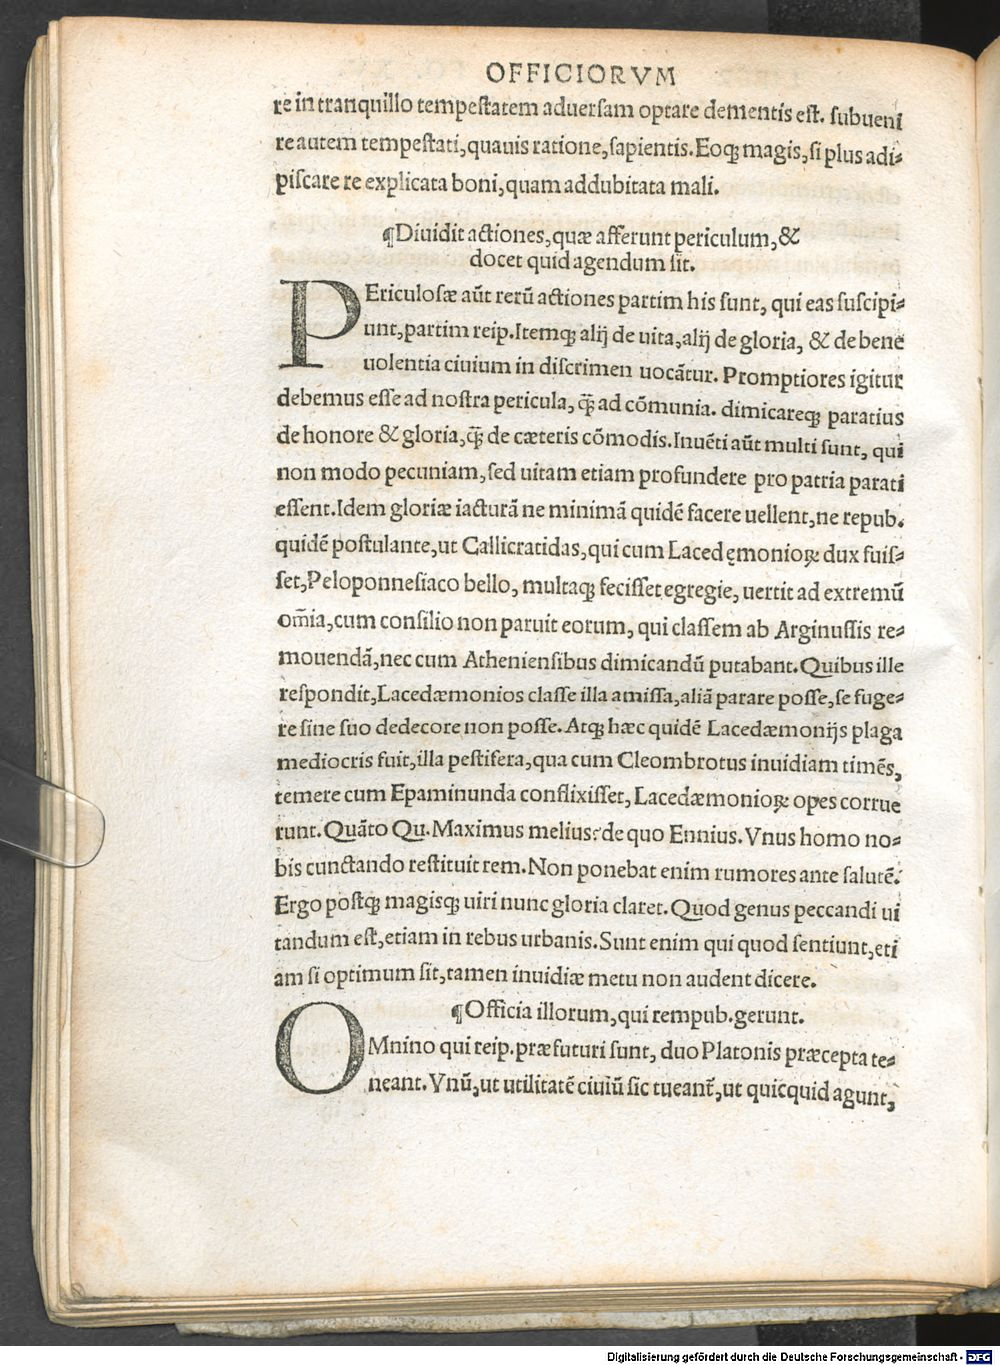 OFFICIORVM
re in tranquillo tempeſtatem aduerſam optare dementis eſt. ſubueni
re autem tempeſtati, quauis ratione, ſapientis. Eoqꝫ magis, ſi plus adi⸗
piſcare re explicata boni, quam addubitata mali.
¶Diuidit actiones, quæ afferunt periculum, &
docet quid agendum ſit.
PEriculoſæ aūt rerū actiones partim his ſunt, qui eas ſuſcipi⸗
unt, partim reip. Itemqꝫ alij de uita, alij de gloria, & de bene
uolentia ciuium in diſcrimen uocātur. Promptiores igitur
debemus eſſe ad noſtra pericula, q̃ꝫ ad cōmunia. dimicareqꝫ paratius
de honore & gloria, q̃ꝫ de cæteris cōmodis. Inuēti aūt multi ſunt, qui
non modo pecuniam, ſed uitam etiam profundere pro patria parati
eſſent. Idem gloriæ iacturā ne minimā quidē facere uellent, ne repub.
quidē poſtulante, ut Callicratidas, qui cum Lacedęmonioꝝ dux fuiſ⸗
ſet, Peloponneſiaco bello, multaqꝫ feciſſet egregie, uertit ad extremū
om̄ia, cum conſilio non paruit eorum, qui claſſem ab Arginuſſis re⸗
mouendā, nec cum Athenienſibus dimicandū putabant. Quibus ille
reſpondit, Lacedæmonios claſſe illa amiſſa, aliā parare poſſe, ſe fuge⸗
re ſine ſuo dedecore non poſſe. Atqꝫ hæc quidē Lacedæmonijs plaga
mediocris fuit, illa peſtifera, qua cum Cleombrotus inuidiam timēs,
temere cum Epaminunda conflixiſſet, Lacedæmonioꝝ opes corrue
runt. Quāto Qu. Maximus melius: de quo Ennius. Vnus homo no⸗
bis cunctando reſtituit rem. Non ponebat enim rumores ante ſalutē.
Ergo poſtqꝫ magisqꝫ uiri nunc gloria claret. Quod genus peccandi ui
tandum eſt, etiam in rebus urbanis. Sunt enim qui quod ſentiunt, eti
am ſi optimum ſit, tamen inuidiæ metu non audent dicere.
¶Officia illorum, qui rempub. gerunt.
OMnino qui reip. præfuturi ſunt, duo Platonis præcepta te⸗
neant. Vnū, ut utilitatē ciuiū ſic tueant᷑, ut quicquid agunt,
Digitalisierung gefördert durch die Deutsche Forschungsgemeinschaft - DFG